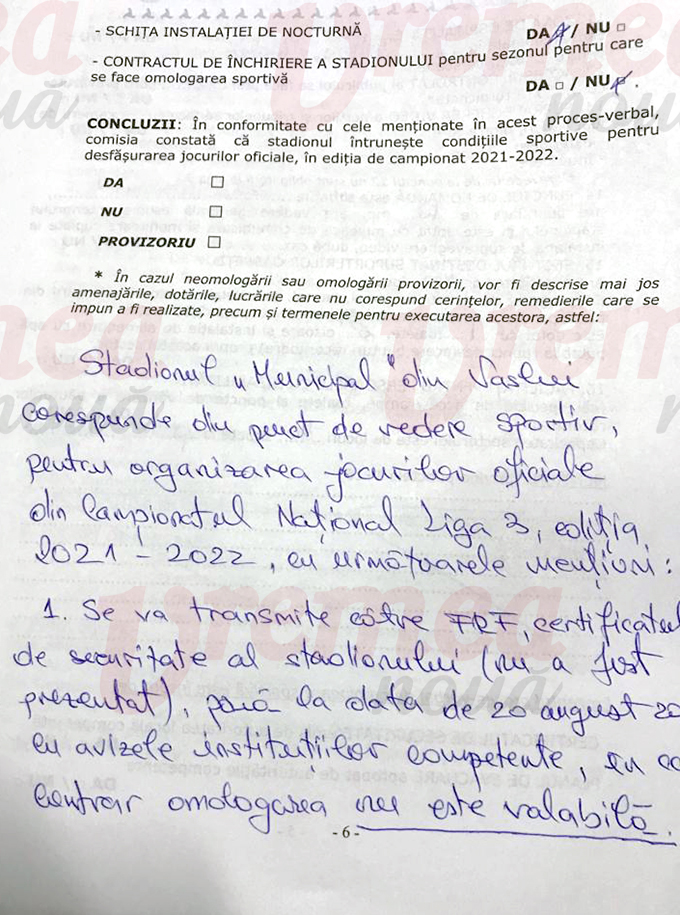 - SCHIȚA INSTALAȚIEI DE NOCTURNĂ DA / NU □
- CONTRACTUL DE ÎNCHIRIERE A STADIONULUI pentru sezonul pentru care
se face omologarea sportivă DA □ / NU .
CONCLUZII: În conformitate cu cele menționate în acest proces-verbal,
comisia constată că stadionul întrunește condițiile sportive pentru
desfășurarea jocurilor oficiale, în ediția de campionat 2021-2022.
DA □
NU □
PROVIZORIU □
* În cazul neomologării sau omologării provizorii, vor fi descrise mai jos
amenajările, dotările, lucrările care nu corespund cerințelor, remedierile care se
impun a fi realizate, precum și termenele pentru executarea acestora, astfel:
Stadionul „Municipal" din Vaslui
corespunde din punct de vedere sportiv,
pentru organizarea jocurilor oficiale
din Campionatul Național Liga 3, ediția
2021-2022, cu următoarele mențiuni:
1. Se va transmite către FRF, certificatul
de securitate al stadionului (nu a fost
prezentat), până la data de 20 august 20
cu avizele instituțiilor competente, în ca
contrar omologarea nu este valabilă.
-6-
vremea
nouă